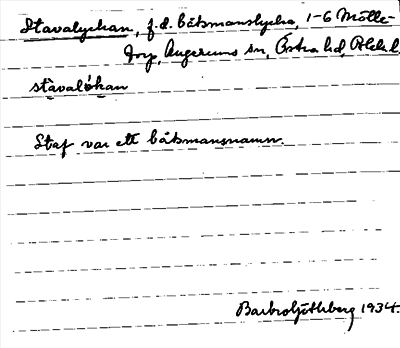 Stavalyckan, f.d. båtsmanslycka, 1-6 Mölle-
torp, Augerums sn, Östra hd, Blek. l.
stàvalỳkan
Staf var ett båtsmansnamn.
Barbro Götlsberg 1934.